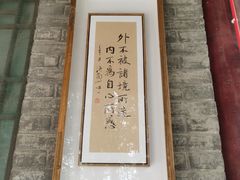 外不被諸境所迷
内不為自心所惑